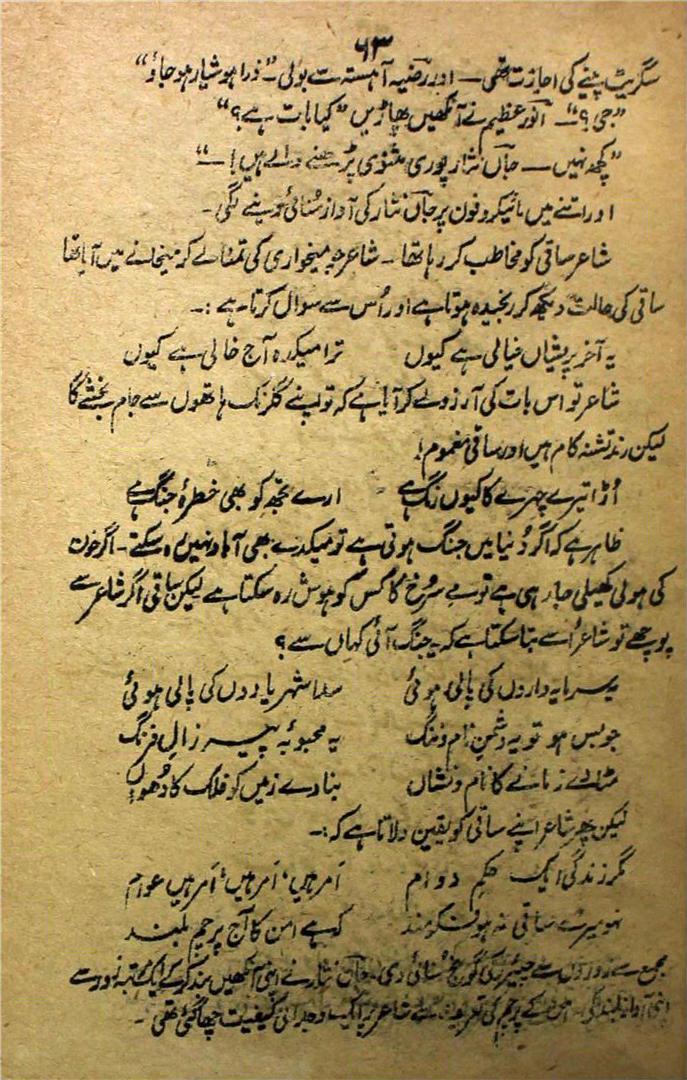 ۶۳
سگریٹ پینے کی اجازت تھی — اور رضیہ آہستہ سے بولی۔ "ذرا ہوشیار ہو جاؤ"
"جی؟" — انور عظیم نے آنکھیں پھاڑیں "کیا بات ہے؟"
"کچھ نہیں — جاں نثار پوری مثنوی پڑھنے والے ہیں! —"
اور اتنے میں مائیکروفون پر جاں نثار کی آواز سنائی دینے لگی۔
شاعر ساقی کو مخاطب کر رہا تھا۔ شاعر جو میخواری کی تمنا لے کر میخانے میں آیا تھا
ساقی کی حالت دیکھ کر رنجیدہ ہوتا ہے اور اُس سے سوال کرتا ہے :۔
یہ آخر پریشاں خیالی ہے کیوں ترا میکدہ آج خالی ہے کیوں
شاعر تو اس بات کی آرزو لے کر آیا ہے کہ تو اپنے گلرنگ ہاتھوں سے جام بخشے گا
لیکن رند تشنہ کام ہیں اور ساقی مغموم!
اُڑا تیرے چہرے کا کیوں رنگ ہے ارے تجھ کو بھی خطرۂ جنگ ہے
ظاہر ہے کہ اگر دُنیا میں جنگ ہوتی ہے تو میکدے بھی آباد نہیں رہ سکتے۔ اگر خون
کی ہولی کھیلی جا رہی ہے تو مے سرخ کا کس کو ہوش رہ سکتا ہے لیکن ساقی اگر شاعر سے
پوچھے تو شاعر اُسے بتا سکتا ہے کہ یہ جنگ آئی کہاں سے؟
یہ سرمایہ داروں کی پالی ہوئی سدا شہریاروں کی پالی ہوئی
جو بس ہو تو یہ دشمنِ نام و ننگ یہ محبوبۂ پیرِ زالِ فرنگ
مٹا دے زمانے کا نام و نشاں بنا دے زمیں کو فلک کا دھواں
لیکن پھر شاعر اپنے ساقی کو یقین دلاتا ہے کہ :۔
مگر زندگی ایک حکمِ دوام امر ہیں، امر ہیں، امر ہیں عوام
نہ میرے ساقی نہ ہو فکرمند کہ ہے امن کا آج پرچم بلند
مجمع سے زوروں سے چیئرز کی گونج سنائی دی۔ جاں نثار نے اپنی آنکھیں بند کر کے ایک مرتبہ زور سے
اپنی آواز بلند کی۔ امن کے پرچم کی تعریف سے شاعر پر ایک وجدانی کیفیت چھا گئی تھی۔